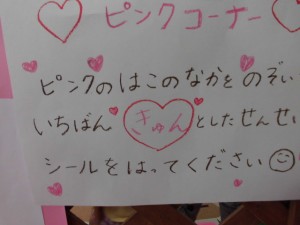 ピンクコーナー
ピンクのはこのなかをのぞい
いちばん きゅん としたせんせい
シールをはってください